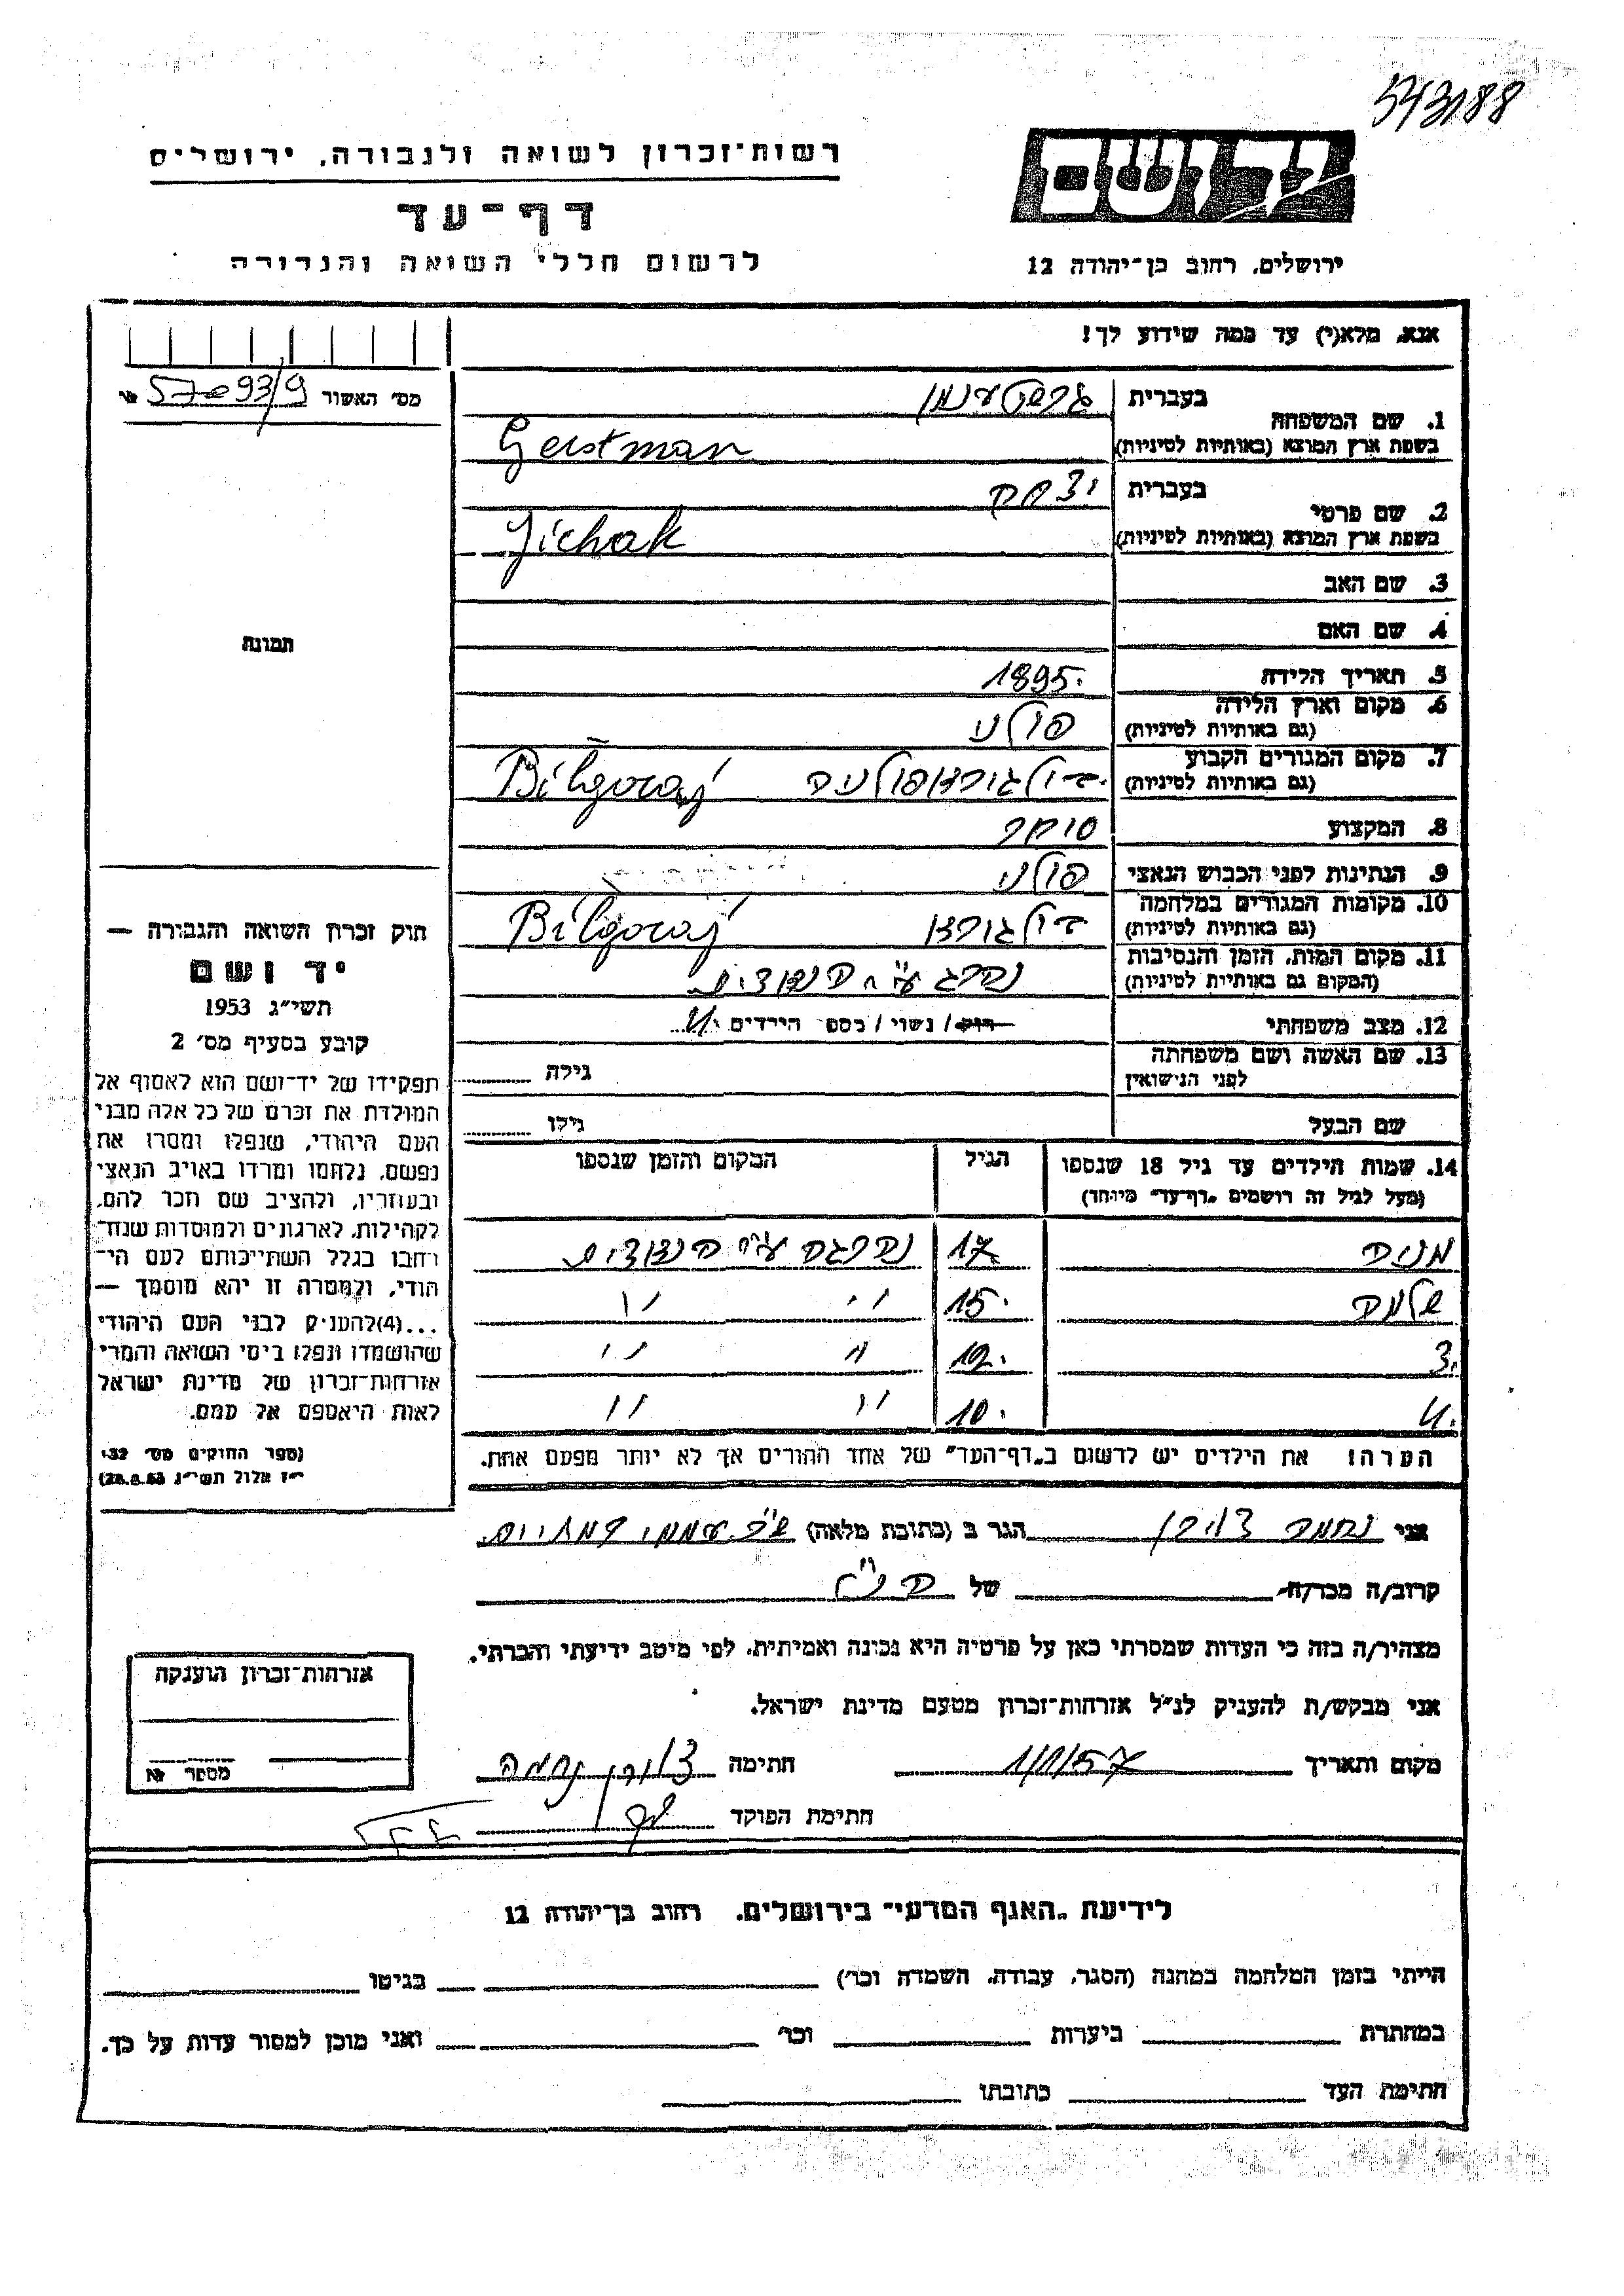 543188
רשות־זכרון לשואה ולגבורה, ירושלים
דף־עד
לרשום חללי השואה והגבורה
יד ושם
ירושלים, רחוב בן־יהודה 12
אנא, מלא(י) עד כמה שידוע לך!
מס׳ האשור 57093/9 №
תמונה
חוק זכרון השואה והגבורה —
יד ושם
תשי״ג 1953
קובע בסעיף מס׳ 2
תפקידו של יד־ושם הוא לאסוף אל
המולדת את זכרם של כל אלה מבני
העם היהודי, שנפלו ומסרו את
נפשם, נלחמו ומרדו באויב הנאצי
ובעוזריו, ולהציב שם וזכר להם,
לקהילות, לארגונים ולמוסדות שנח־
רחבו בגלל השתייכותם לעם הי־
הודי, ולמטרה זו יהא מוסמך —
...(4)להעניק לבני העם היהודי
שהושמדו ונפלו בימי השואה והמרי
אזרחות־זכרון של מדינת ישראל
לאות היאספם אל עמם.
(ספר החוקים מס׳ 132
י״ז אלול תשי״ג 28.8.53)
1. שם המשפחה
בעברית גרסטענמן
בשפת ארץ המוצא (באותיות לטיניות) Gerstman
2. שם פרטי
בעברית יצחק
בשפת ארץ המוצא (באותיות לטיניות) Jichak
3. שם האב
4. שם האם
5. תאריך הלידה 1895.
6. מקום וארץ הלידה
(גם באותיות לטיניות) פולני
7. מקום המגורים הקבוע
(גם באותיות לטיניות) בילגוריי פולניה Biłgoraj
8. המקצוע סוחר
9. הנתינות לפני הכבוש הנאצי פולני
10. מקומות המגורים במלחמה
(גם באותיות לטיניות) בילגוריי Biłgoraj
11. מקום המות, הזמן והנסיבות
(המקום גם באותיות לטיניות) נהרג ע״י הנאצים
12. מצב משפחתי רווק / נשוי / מספר הילדים 4.
13. שם האשה ושם משפחתה
לפני הנישואין גילה
שם הבעל גילו
14. שמות הילדים עד גיל 18 שנספו
(מעל לגיל זה רושמים „דף־עד״ מיוחד) הגיל המקום והזמן שנספו
מניה 17 נהרגה ע״י הנאצים
שלמה 15. ״ ״
3. 12. ״ ״
4. 10. ״ ״
הערה: את הילדים יש לרשום ב„דף־העד״ של אחד ההורים אך לא יותר מפעם אחת.
אני נחמה הגר ב (כתובת מלאה)
קרוב/ה מכר/ה של הנ״ל
מצהיר/ה בזה כי העדות שמסרתי כאן על פרטיה היא נכונה ואמיתית, לפי מיטב ידיעתי והכרתי.
אני מבקש/ת להעניק לנ״ל אזרחות־זכרון מטעם מדינת ישראל.
מקום ותאריך 1/1/57 חתימה נחמה
חתימת הפוקד
אזרחות־זכרון הוענקה
מספר №
לידיעת „האגף המדעי״ בירושלים. רחוב בן־יהודה 12
הייתי בזמן המלחמה במחנה (הסגר, עבודה, השמדה וכו׳) בגיטו
במחתרת ביערות וכו׳ ואני מוכן למסור עדות על כך.
חתימת העד כתובתו